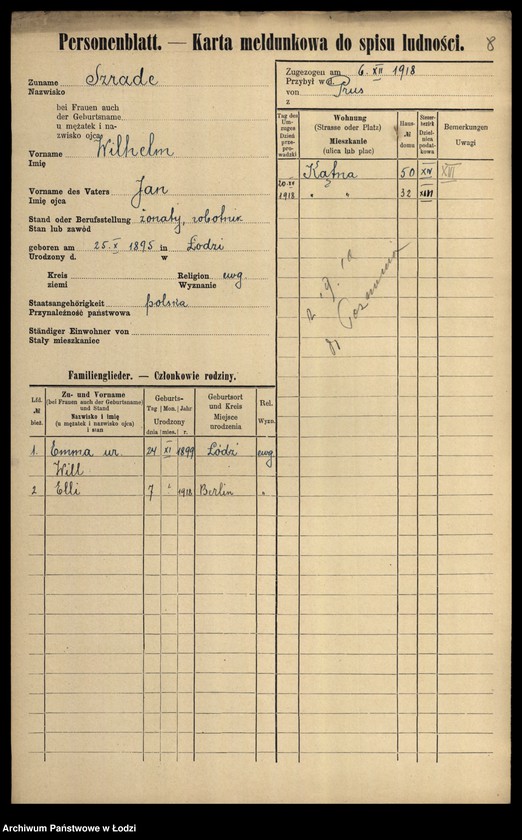 Personenblatt. — Karta meldunkowa do spisu ludności.
8
Zuname Szrade
Nazwisko
bei Frauen auch
der Geburtsname
u mężatek i na-
zwisko ojca
Vorname Wilhelm
Imię
Vorname des Vaters Jan
Imię ojca
Stand oder Berufsstellung żonaty, robotnik
Stan lub zawód
geboren am 25. X 1895 in Łodzi
Urodzony d. w
Kreis Religion ewg
ziemi Wyznanie
Staatsangehörigkeit polska
Przynależność państwowa
Ständiger Einwohner von
Stały mieszkaniec
Zugezogen am 6. XII 1918
Przybył w d.
von Prus
z
Tag des Um-zuges Dzień prze-pro-wadzki
Wohnung
(Strasse oder Platz)
Mieszkanie
(ulica lub plac)
Haus-
№
domu
Steuer-bezirk Dziel-nica podat-kowa
Bemerkungen
Uwagi
Kątna 50 XIV XIII
20.XII 1918 " " 32 XIII
Familienglieder. — Członkowie rodziny.
Lfd.
№
bież.
Zu- und Vorname
(bei Frauen auch der Geburtsname)
und Stand
Nazwisko i imię
(u mężatek i nazwisko ojca)
i stan
Geburts-
Tag Mon. Jahr
Urodzony
dnia mies. r.
Geburtsort
und Kreis
Miejsce
urodzenia
Rel.
Wyzn.
1. Emma ur. 24 XI 1899 Łódź ewg
Will
2 Elli 7 " 1918 Berlin "
Archiwum Państwowe w Łodzi